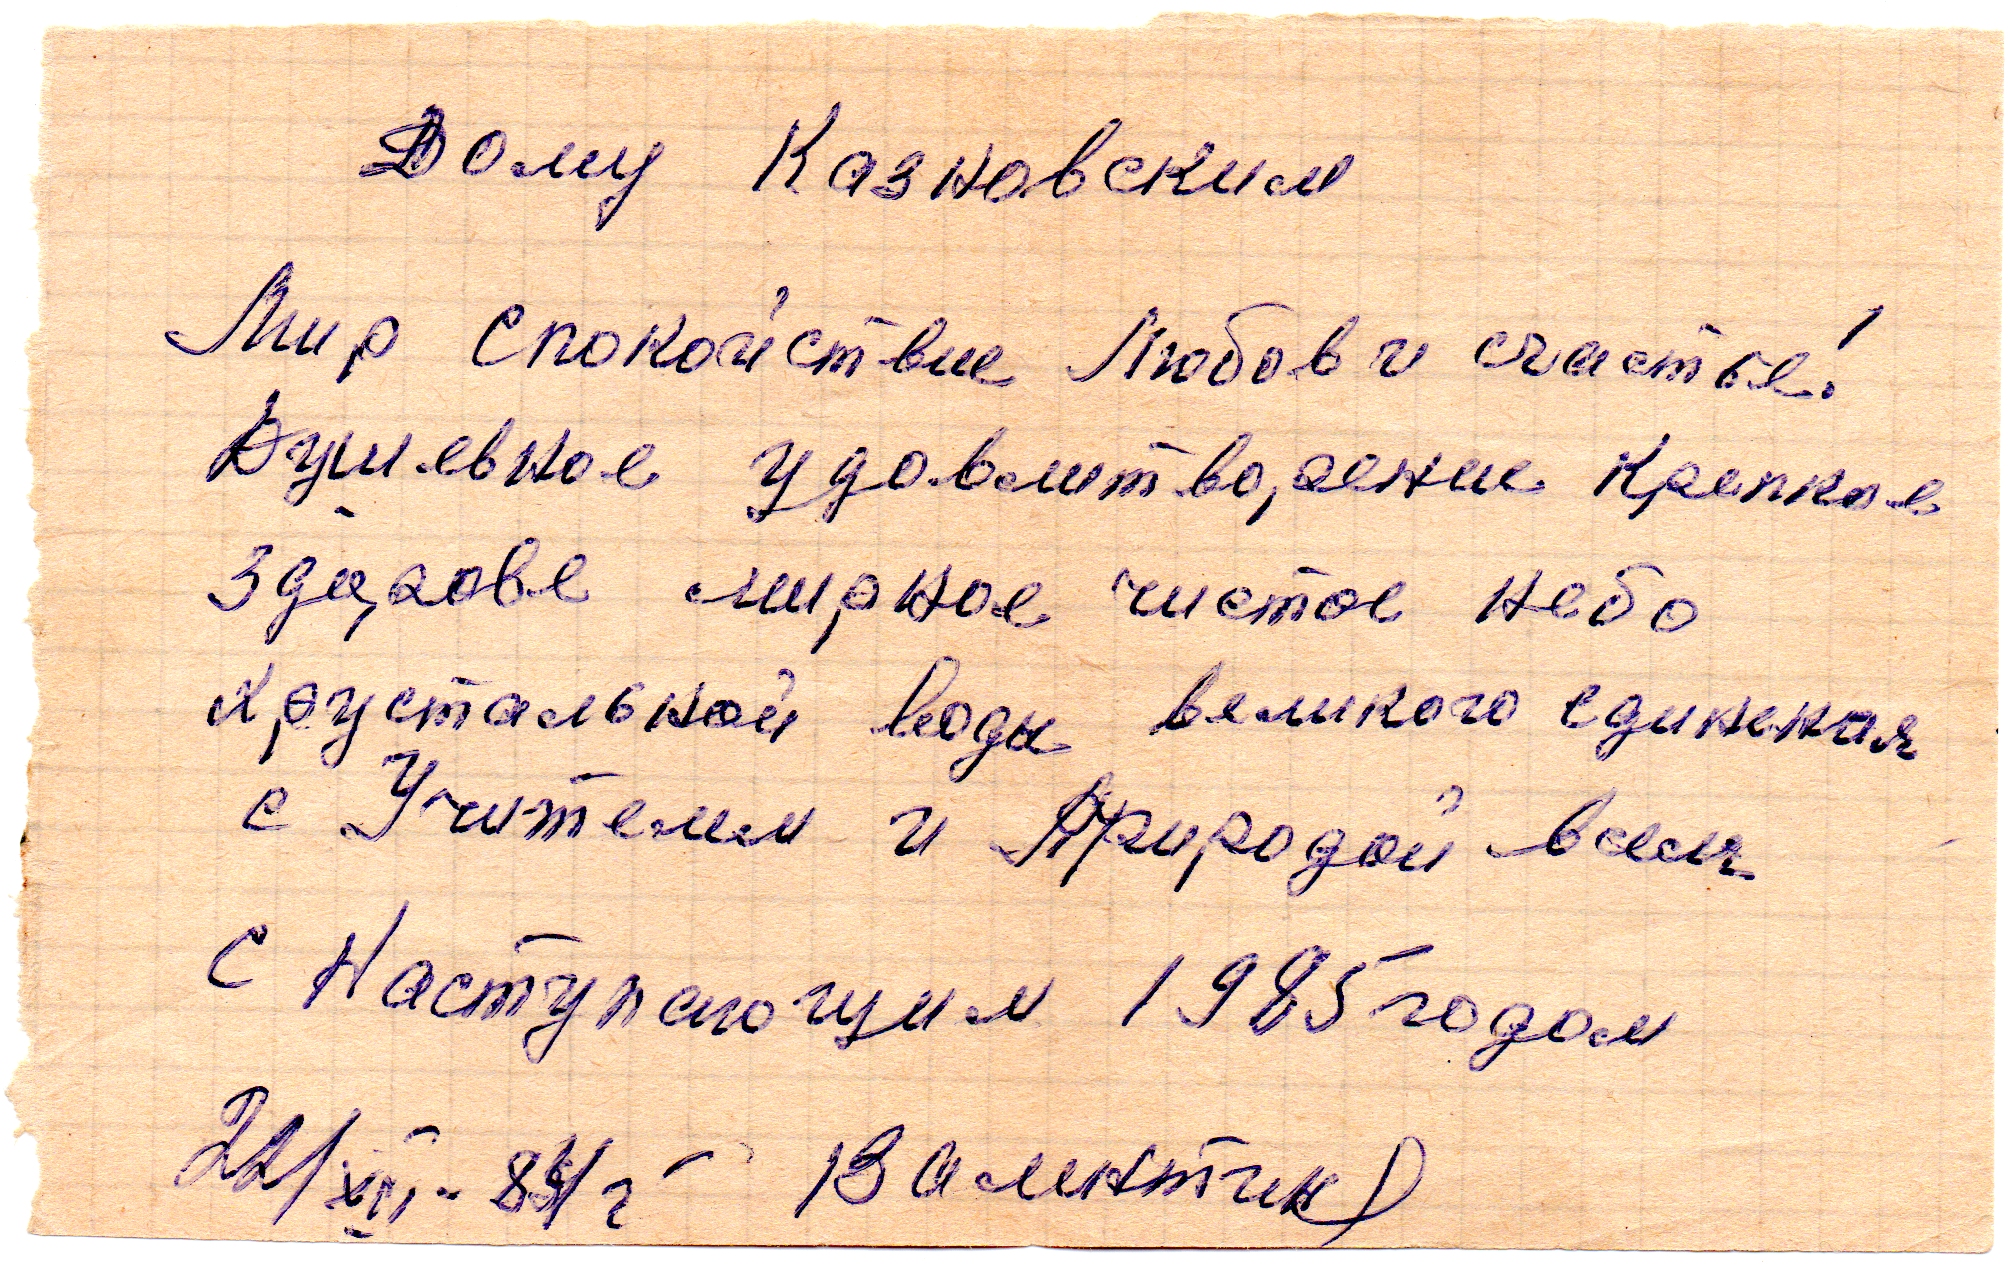 Дому Казновским
Мир Спокойствие Любов и счастье!
Душевное удовлитворение Крепкое
здарове мирное чистое небо
хрустальной воды великого единения
с Учителем и Природой всем
С Наступающим 1985 годом
22/XII-84г Валентин